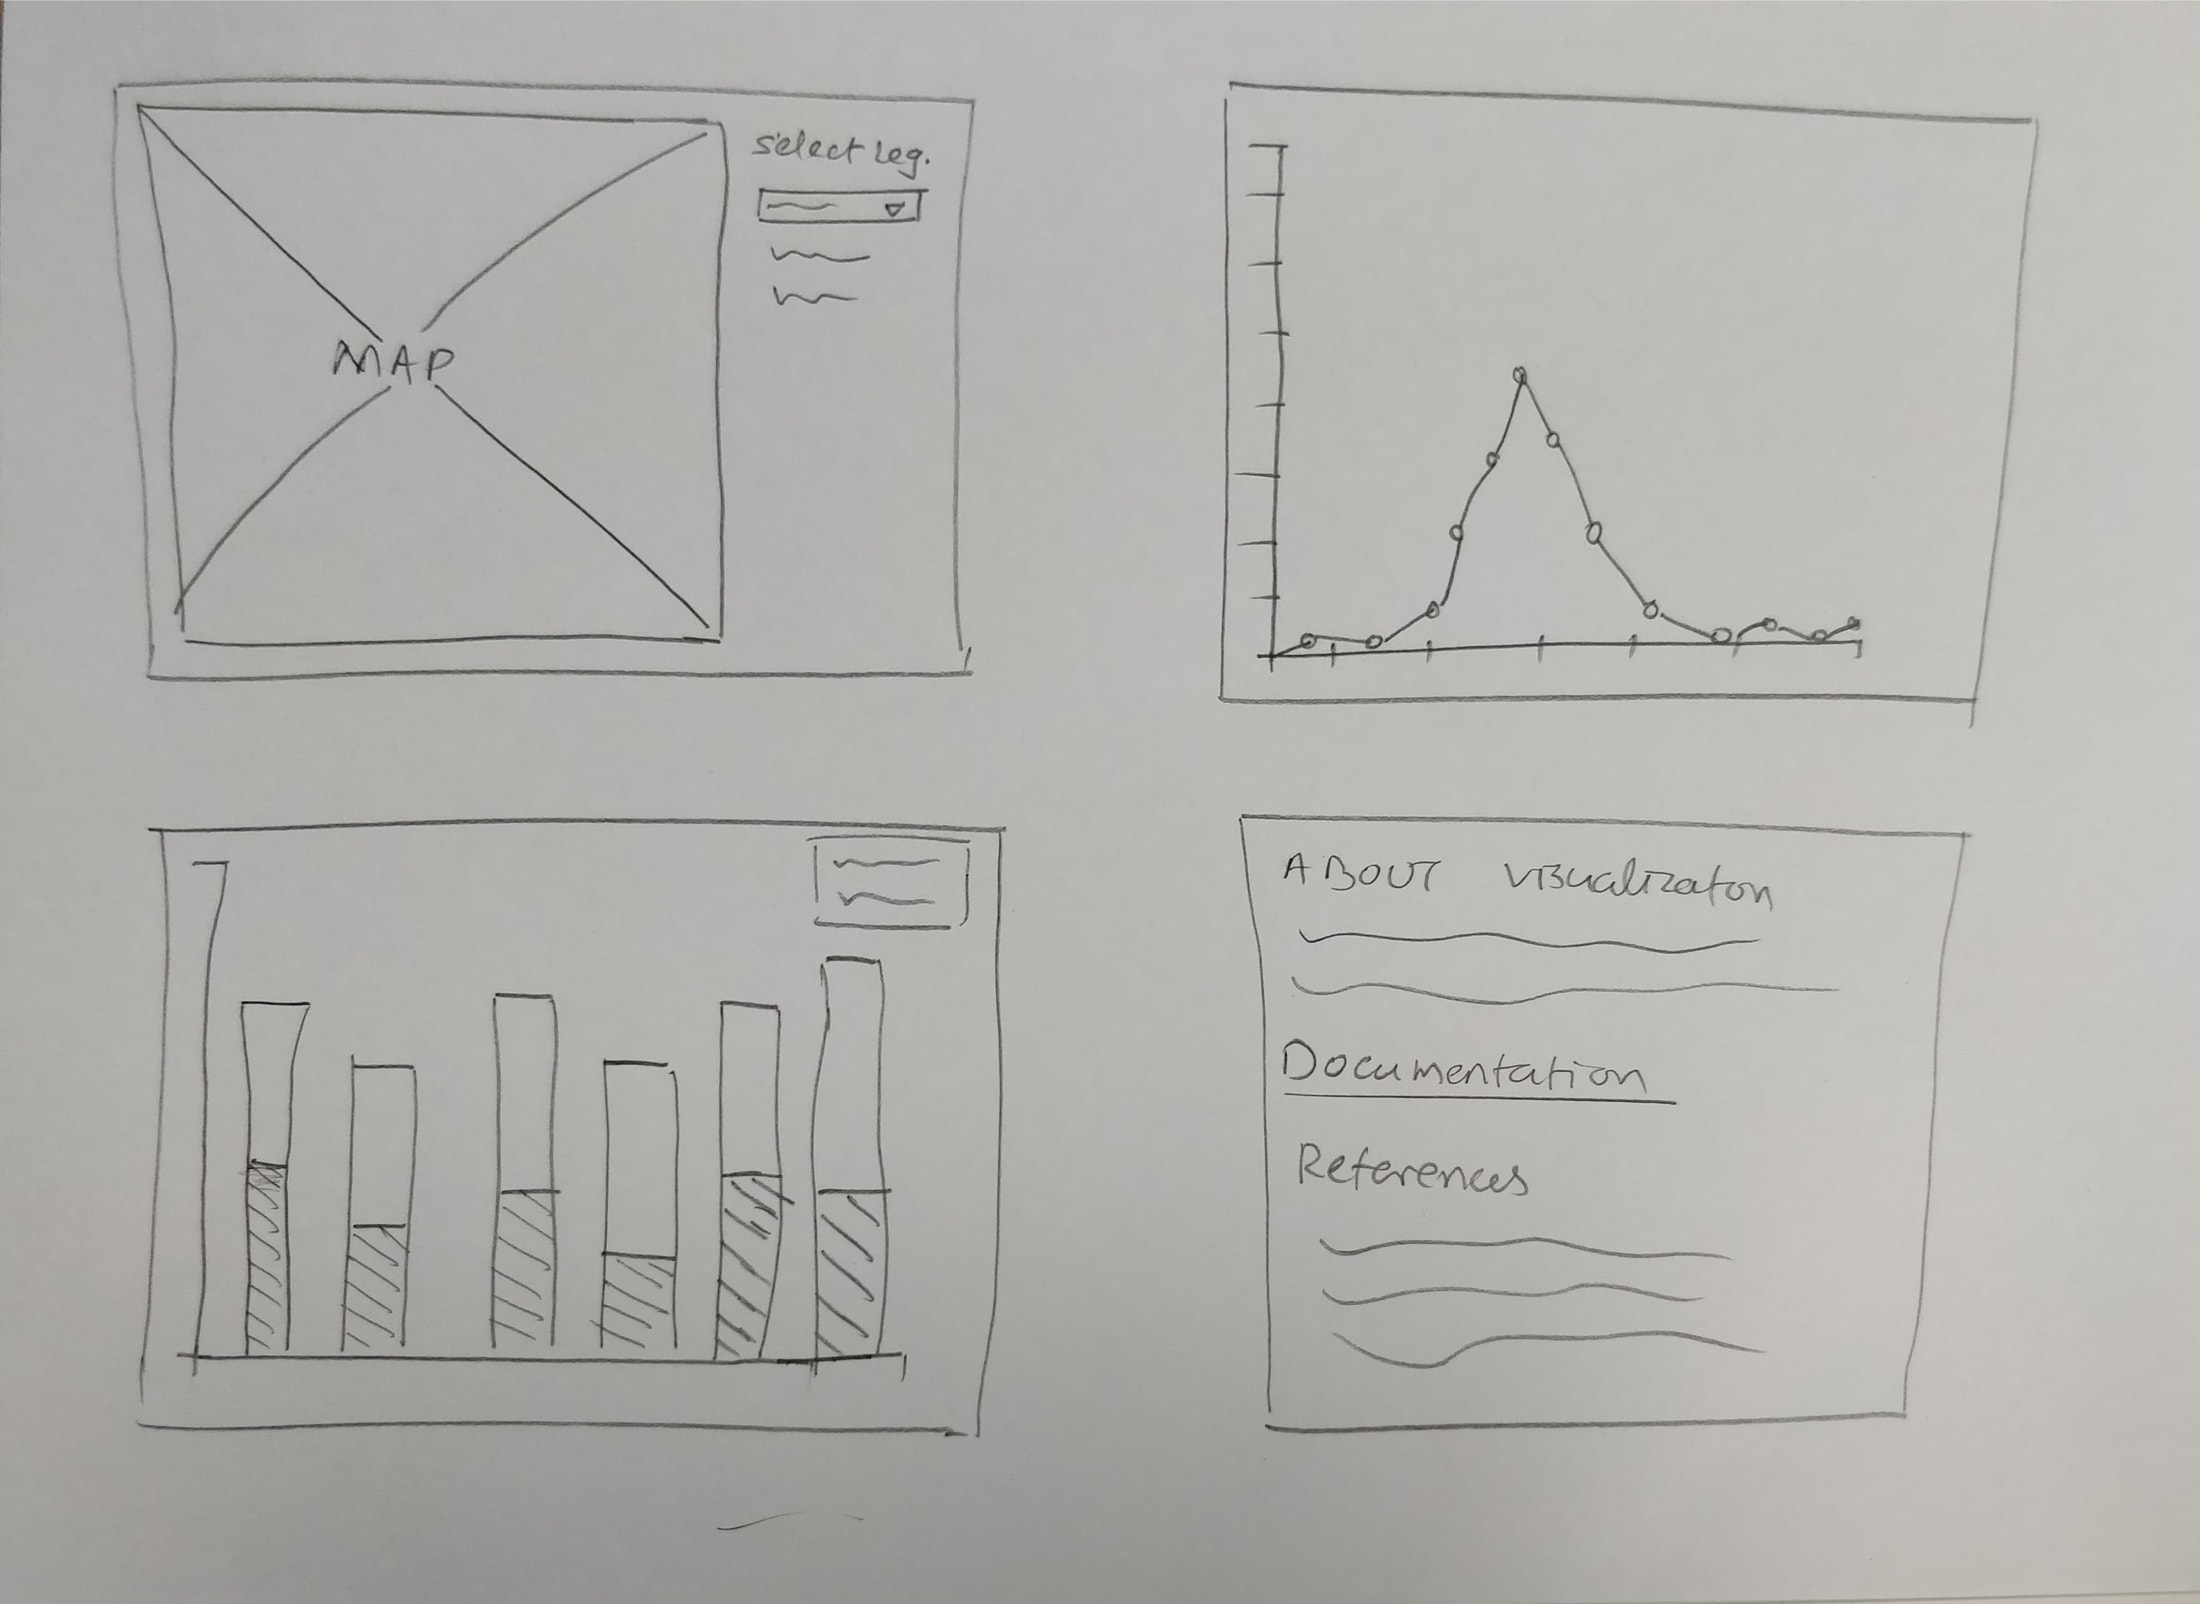 select Leg.
MAP
ABOUT Visualizaton
Documentation
References